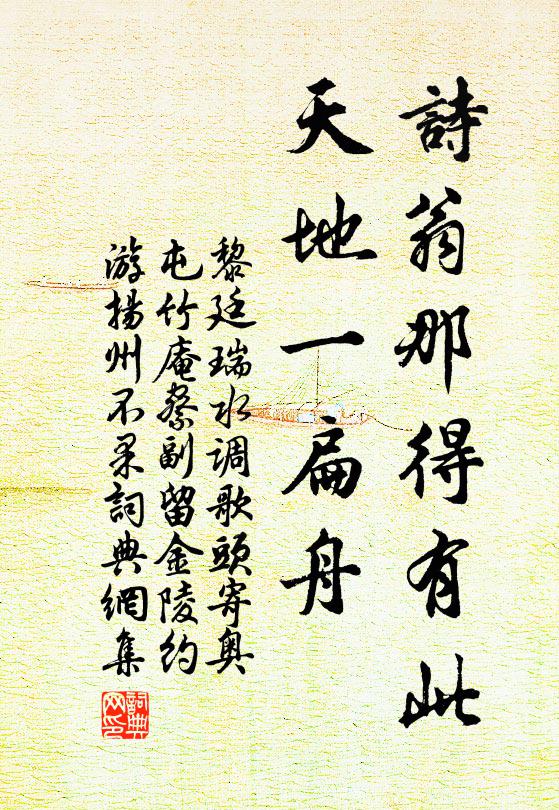 詩翁那得有此
天地一扁舟
黎廷瑞水调歌頭寄奥
屯竹庵察副留金陵约
游揚州不果詞典網集
詞典
网印